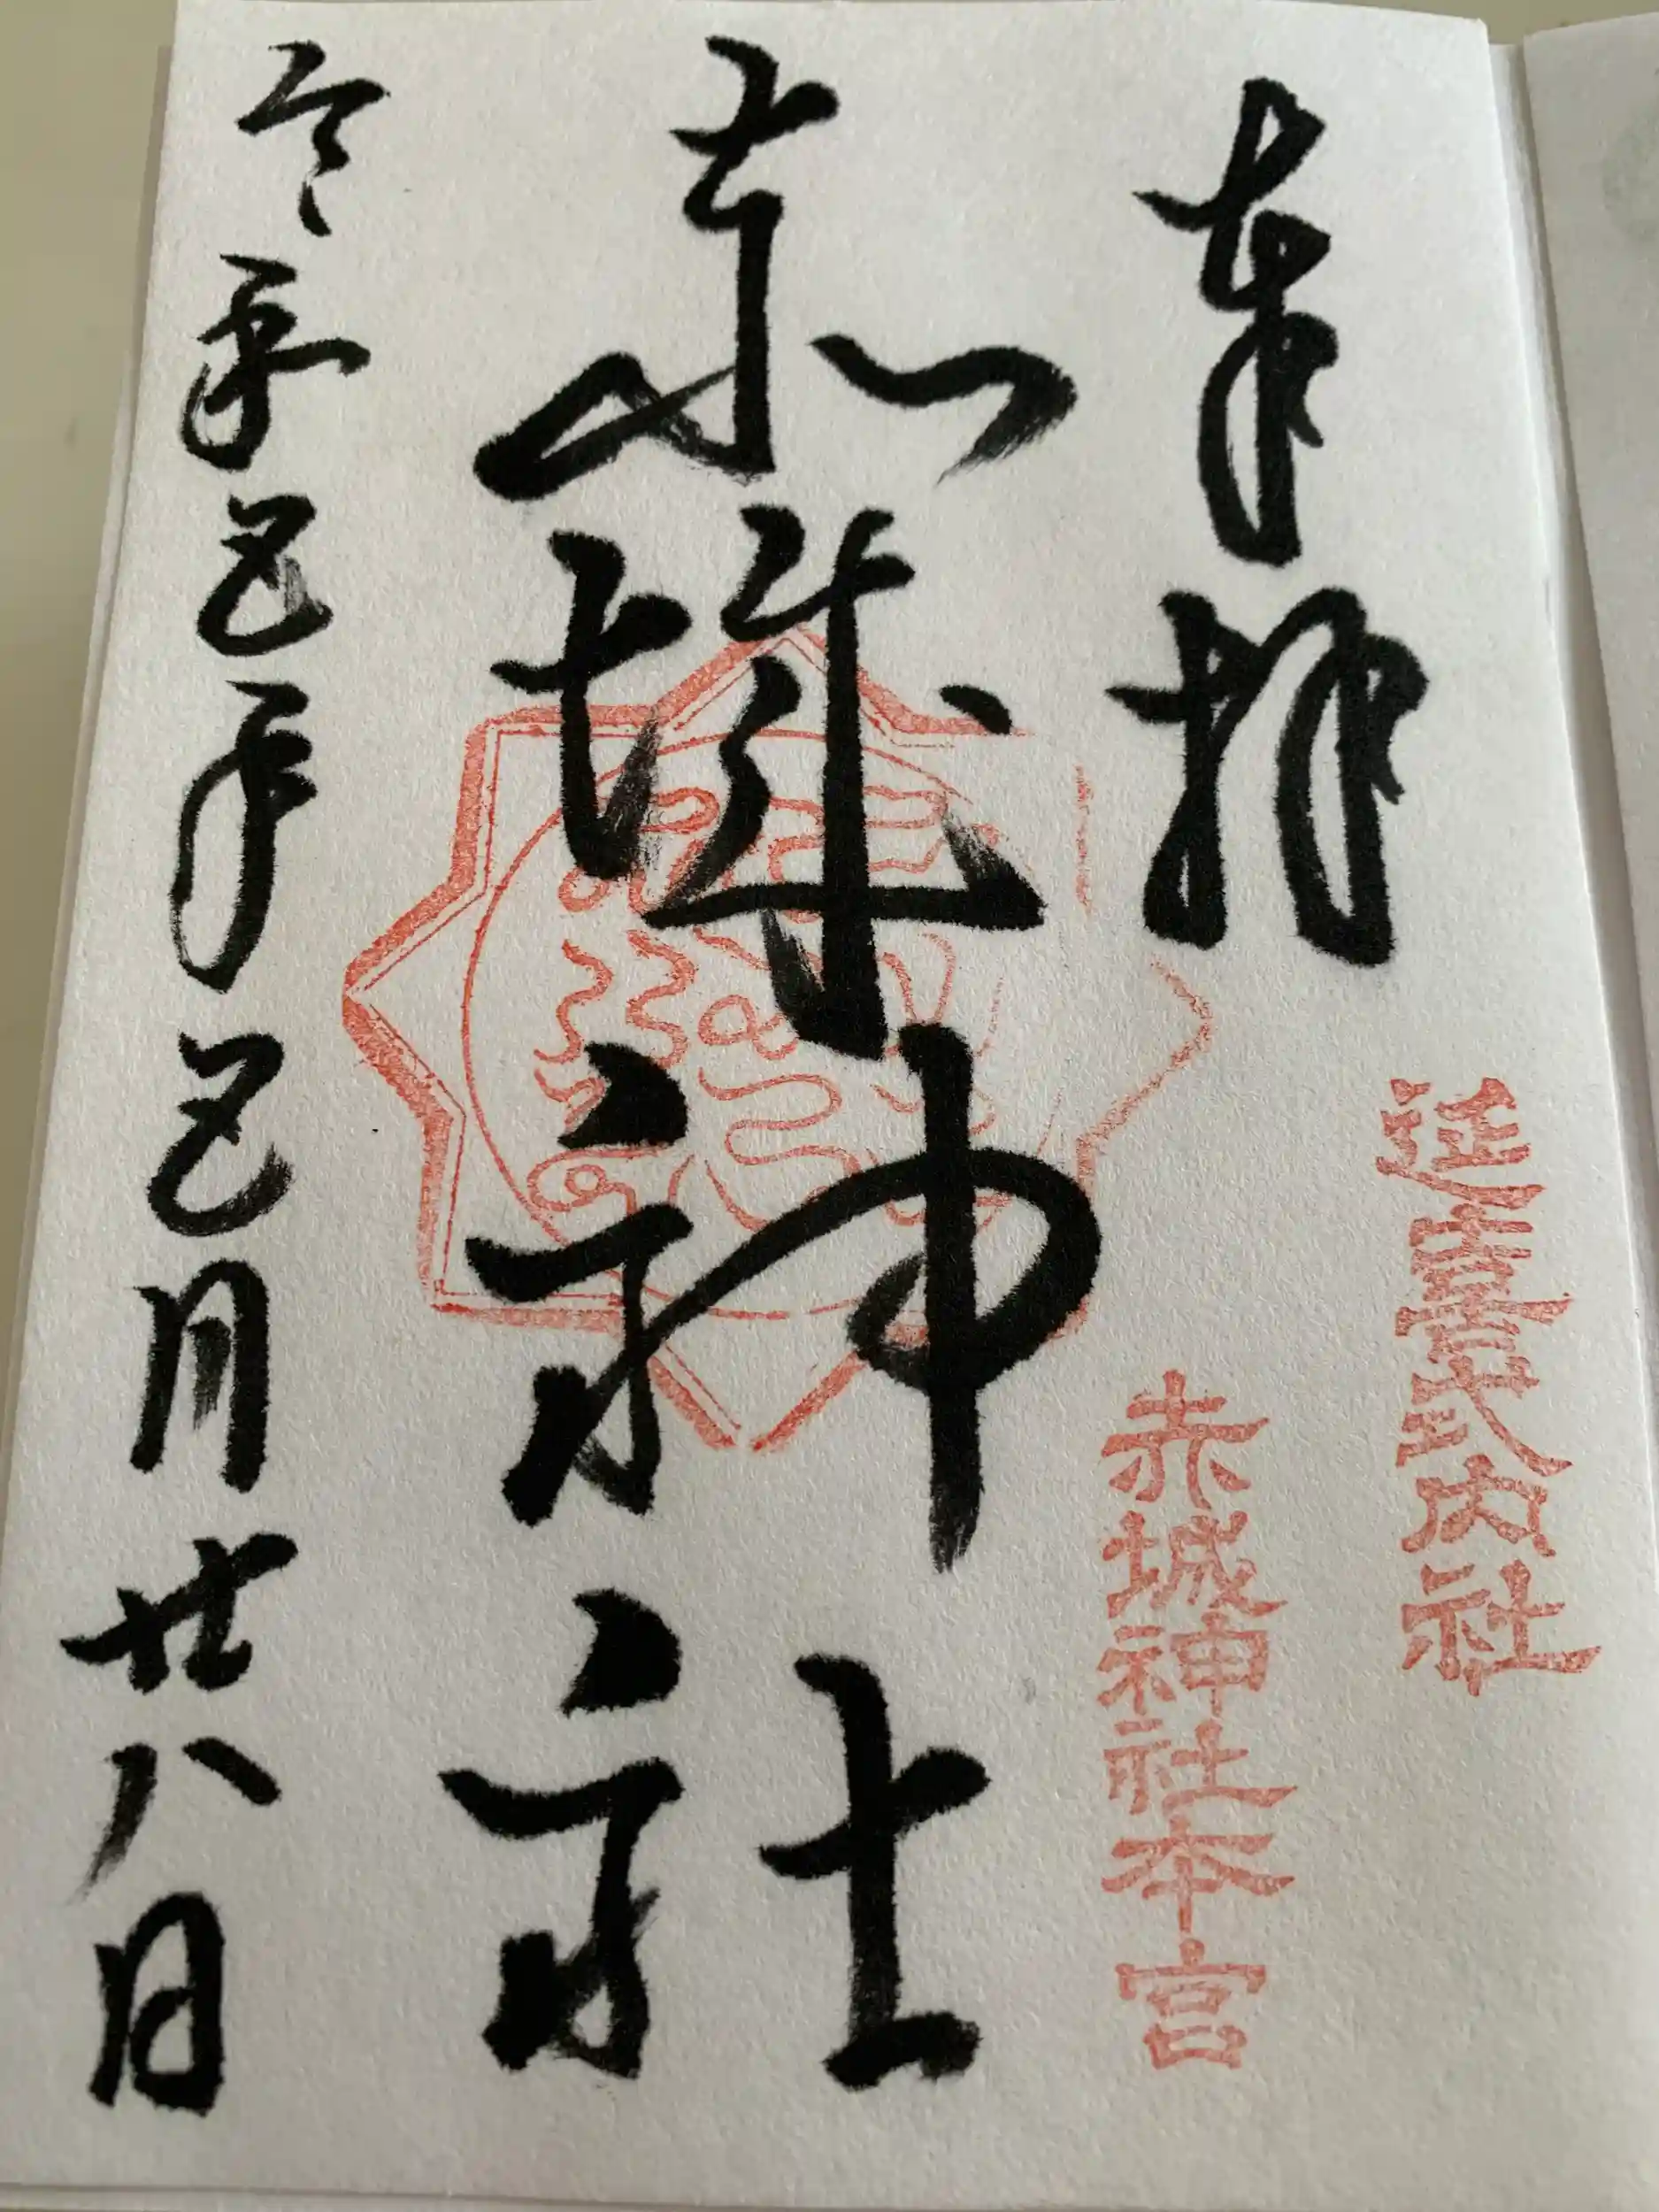 奉拝
延喜式内社
赤城神社本宮
赤城神社
令和 年 月廿八日